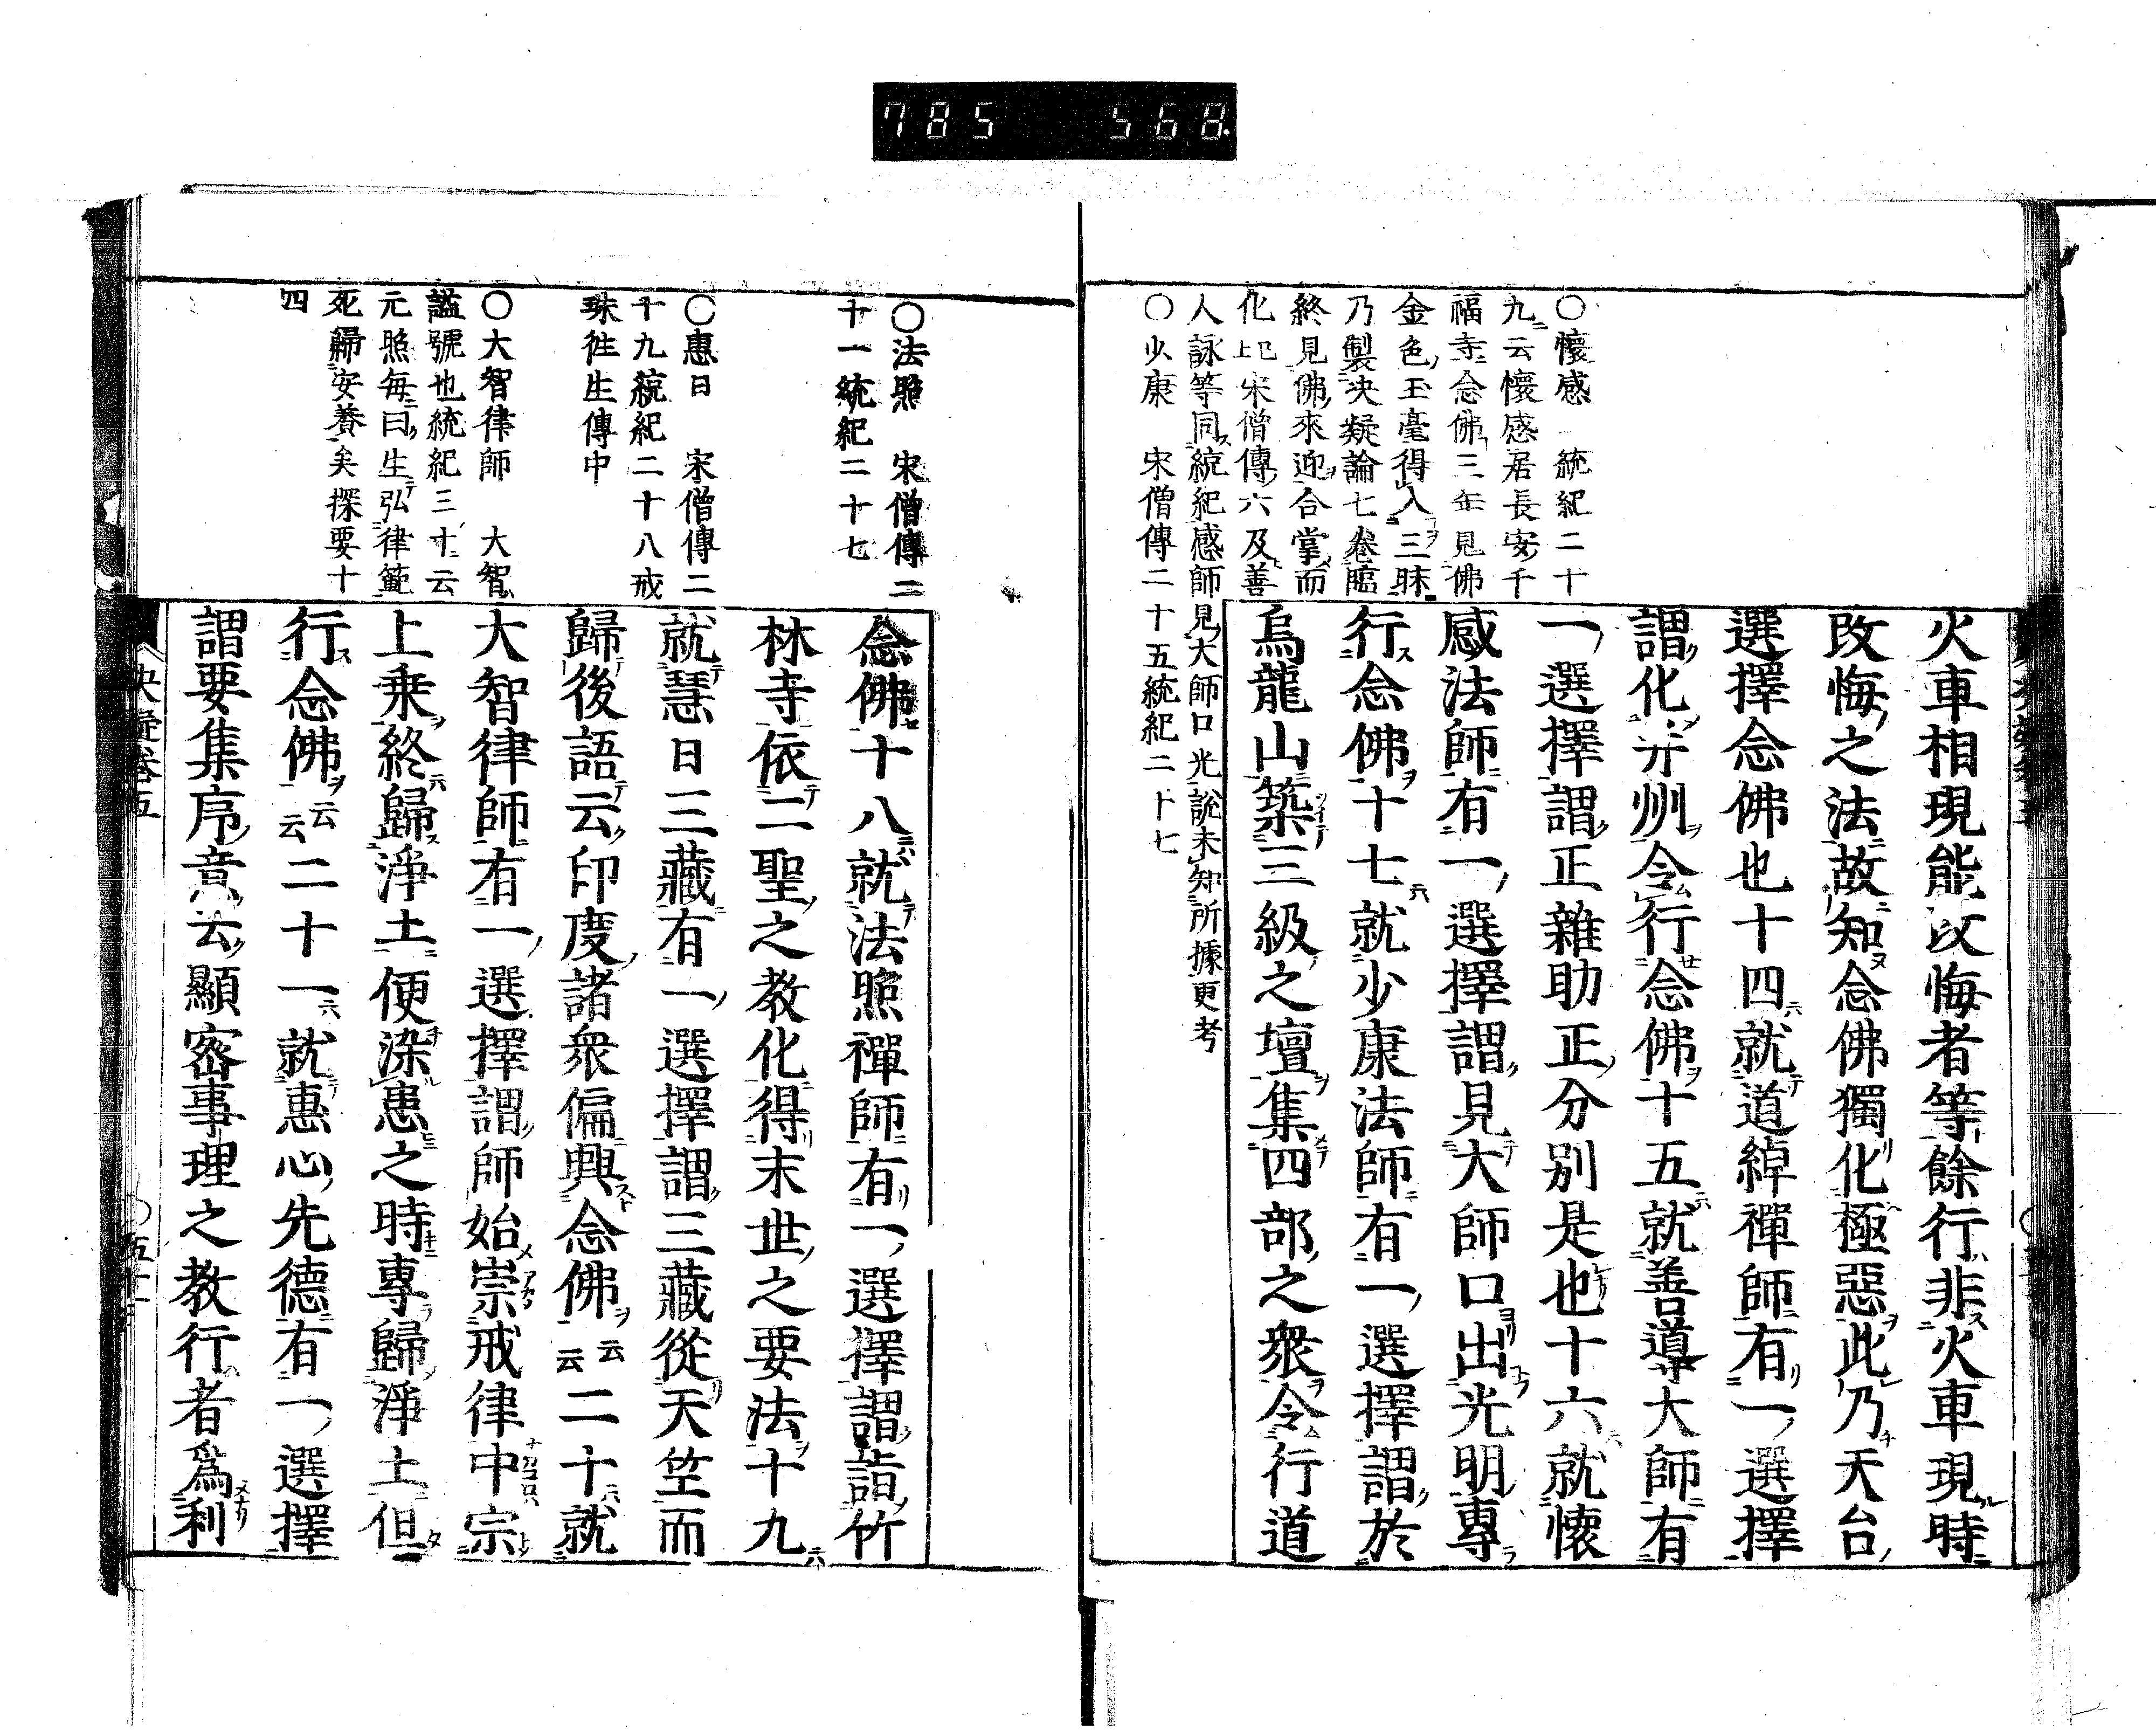 785 568
火車相現能改悔者等餘行非火車現時
改悔之法故知念佛獨化極惡此乃天台
選擇念佛也十四就道綽禪師有一選擇
謂化并州令行念佛十五就善導大師有
一選擇謂正雜助正分別是也十六就懷
感法師有一選擇謂見大師口出光明專
行念佛十七就少康法師有一選擇謂於
烏龍山築三級之壇集四部之衆令行道
〇懷感 統紀二十
九云懷感居長安千
福寺念佛三年見佛
金色玉毫得入三昧
乃製决疑論七卷臨
終見佛來迎合掌而
化上巳宋僧傳六及善
人詠等同統紀感師見大師口光說未知所據更考
〇少康 宋僧傳二十五統紀二十七
念佛十八就法照禪師有一選擇謂詣竹
林寺依二聖之教化得末世之要法十九
就慧日三藏有一選擇謂三藏從天竺而
歸後語云印度諸衆偏興念佛云云二十就
大智律師有一選擇謂師始崇戒律中宗
上乗終歸淨土便染患之時專歸淨土但
行念佛云云二十一就惠心先德有一選擇
謂要集序意云顯密事理之教行者爲利
〇法照 宋僧傳二
十一統紀二十七
〇惠日 宋僧傳二
十九統紀二十八戒
珠徃生傳中
〇大智律師 大智
謚號也統紀三十云
元照毎曰生弘律範
死歸安養矣探要十
四
决疑卷五